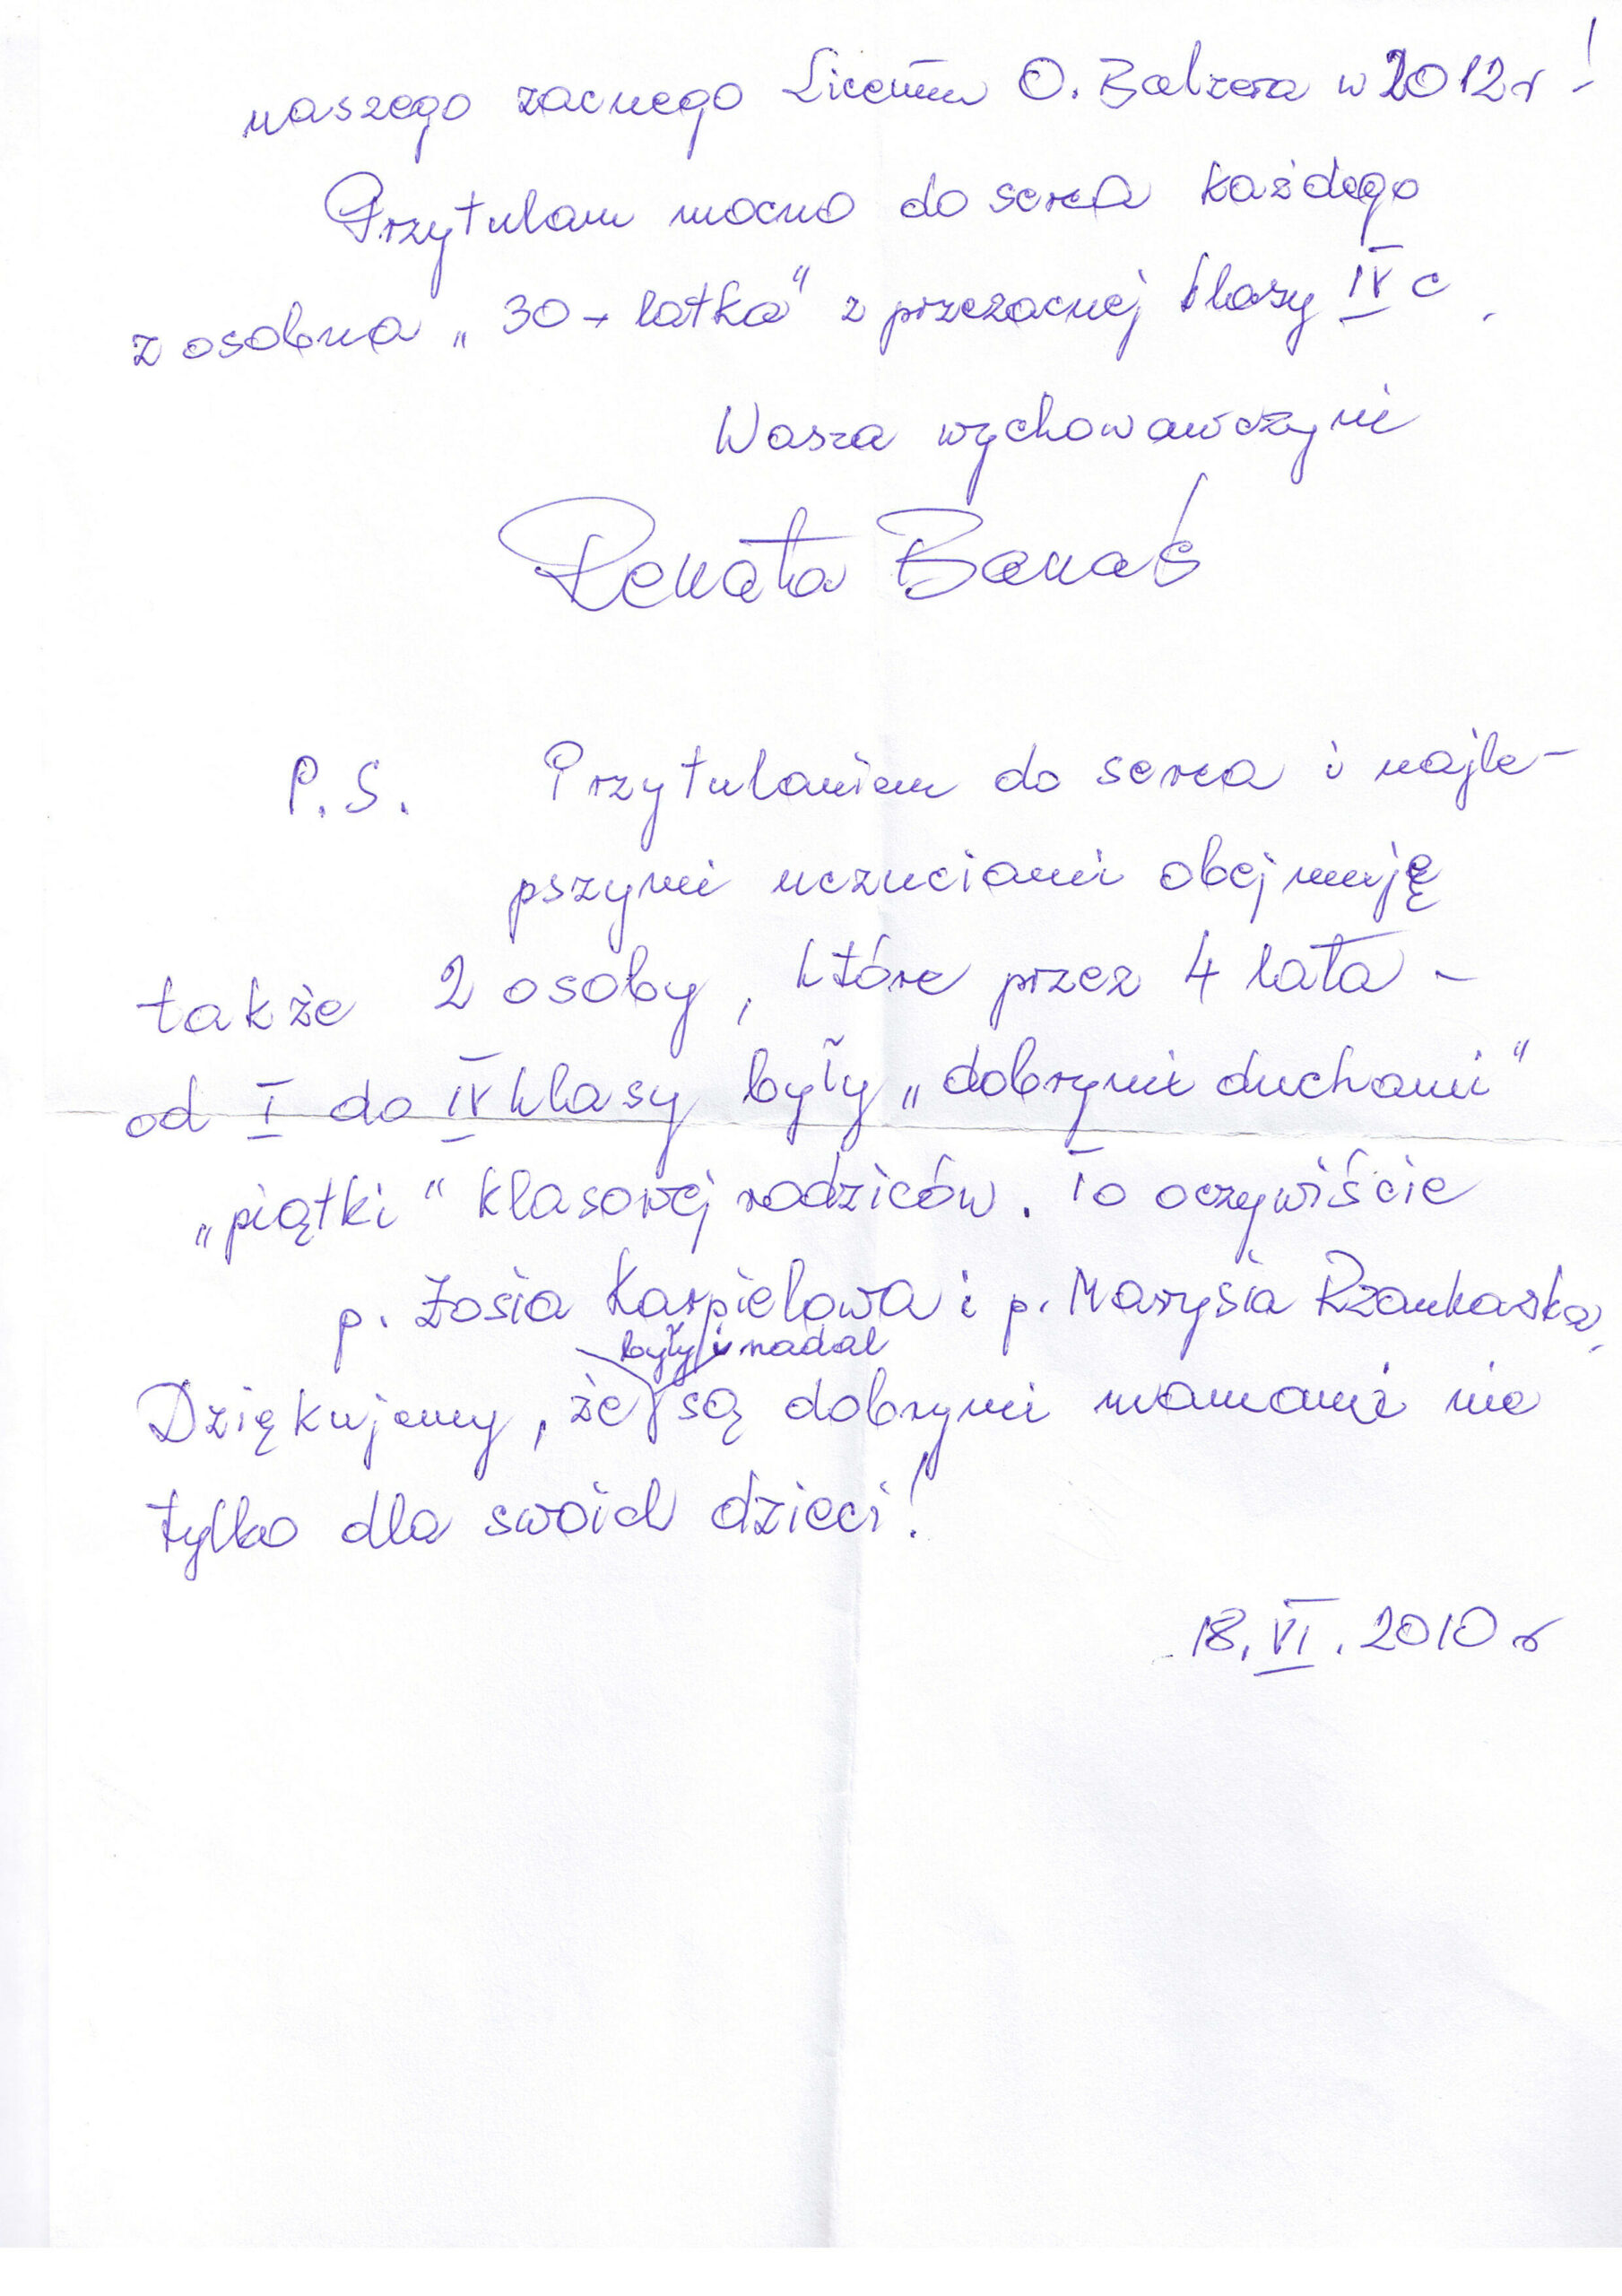 naszego zacnego Liceum O. Balzera w 2012 r!
Przytulam mocno do serca każdego
z osobna „30-latka" z przezacnej klasy IV c.
Wasza wychowawczyni
Renata Banaś
P.S. Przytulaniem do serca i najle-
pszymi uczuciami obejmuję
także 2 osoby, które przez 4 lata -
od I do IV klasy były „dobrymi duchami"
„piątki" klasowej rodziców. To oczywiście
p. Zosia Karpielowa i p. Marysia
były i nadal
Dziękujemy, że są dobrymi mamami nie
tylko dla swoich dzieci!
18.VI.2010 r